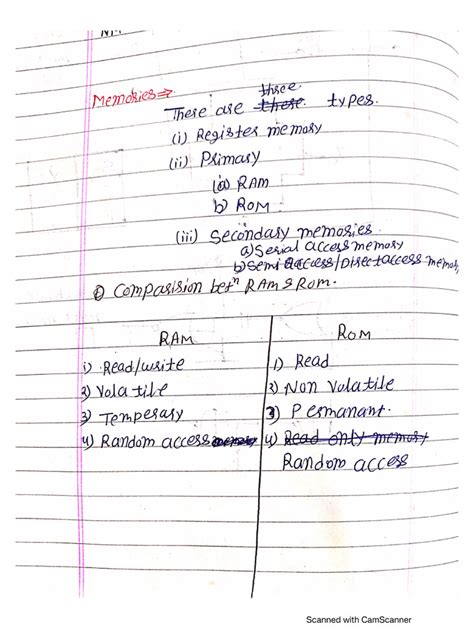 Memories⇒
three
There are ~~there~~ types.
(i) Register memory
(ii) Primary
(a) RAM
b) ROM
(iii) Secondary memories.
a) Serial access memory
b) Semi access/Direct access memory
① Comparision betⁿ RAM & ROM.
RAM ROM
i) Read/write 1) Read
2) Volatile 2) Non Volatile
3) Temperary 3) Permanant.
4) Random access ~~memory~~ 4) ~~Read only memory~~
Random access
Scanned with CamScanner